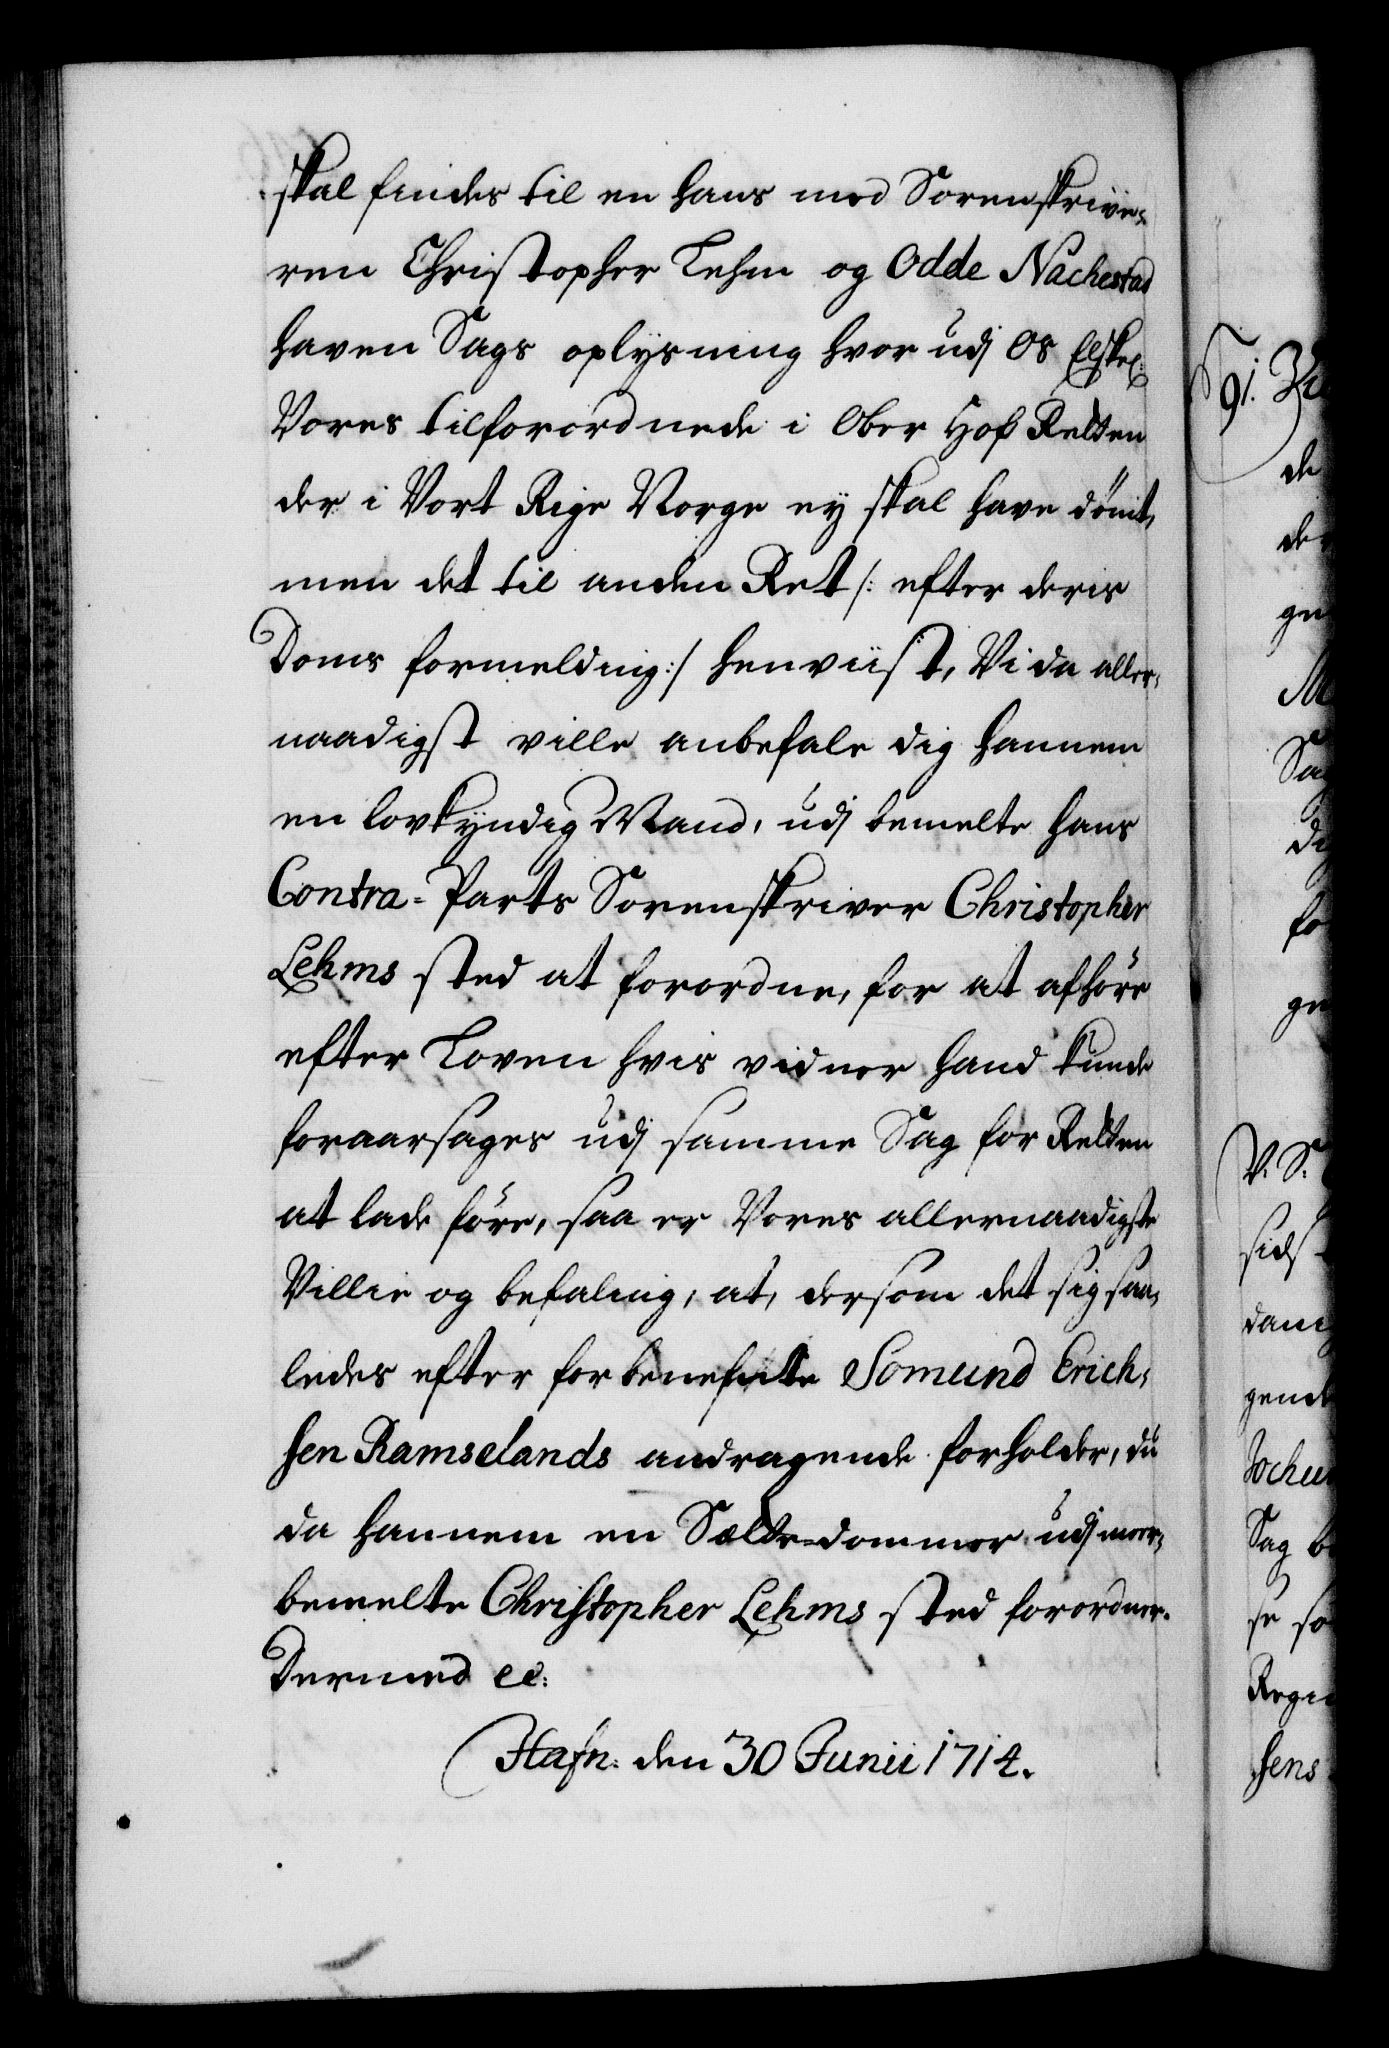 skal findes til en hans med Sorenskrive-
ren Christopher Lehm og Odde Nachestad
haven Sags oplysning hvor udj Os Elskel:
Vores tilforordnede i Ober Hof Retten
der i Vort Rige Norge ey skal have dömt,
men det til anden Ret /: efter deris
Doms formelding :/ henviist, Vi da aller-
naadigst ville anbefale dig hannem
en lovkyndig Mand, udj bemelte hans
Contra-Parts Sorenskriver Christopher
Lehms sted at forordne, for at afhöre
efter Loven hvis vidner hand kunde
foraarsages udj samme Sag for Retten
at lade före, saa er Vores allernaadigste
Villie og befaling, at, dersom det sig saa-
ledes efter forbenefnte Somund Erich-
sen Ramselands andragende forholder, du
da hannem en Sætte-dommer udj meer-
bemelte Christopher Lehms sted forordner.
Dermed ec:
Hafn: den 30 Junii 1714.
91.
de
ge
Sag
fo
ge
V. S.
dan
gende
Jochum
Sag be
se so
sens